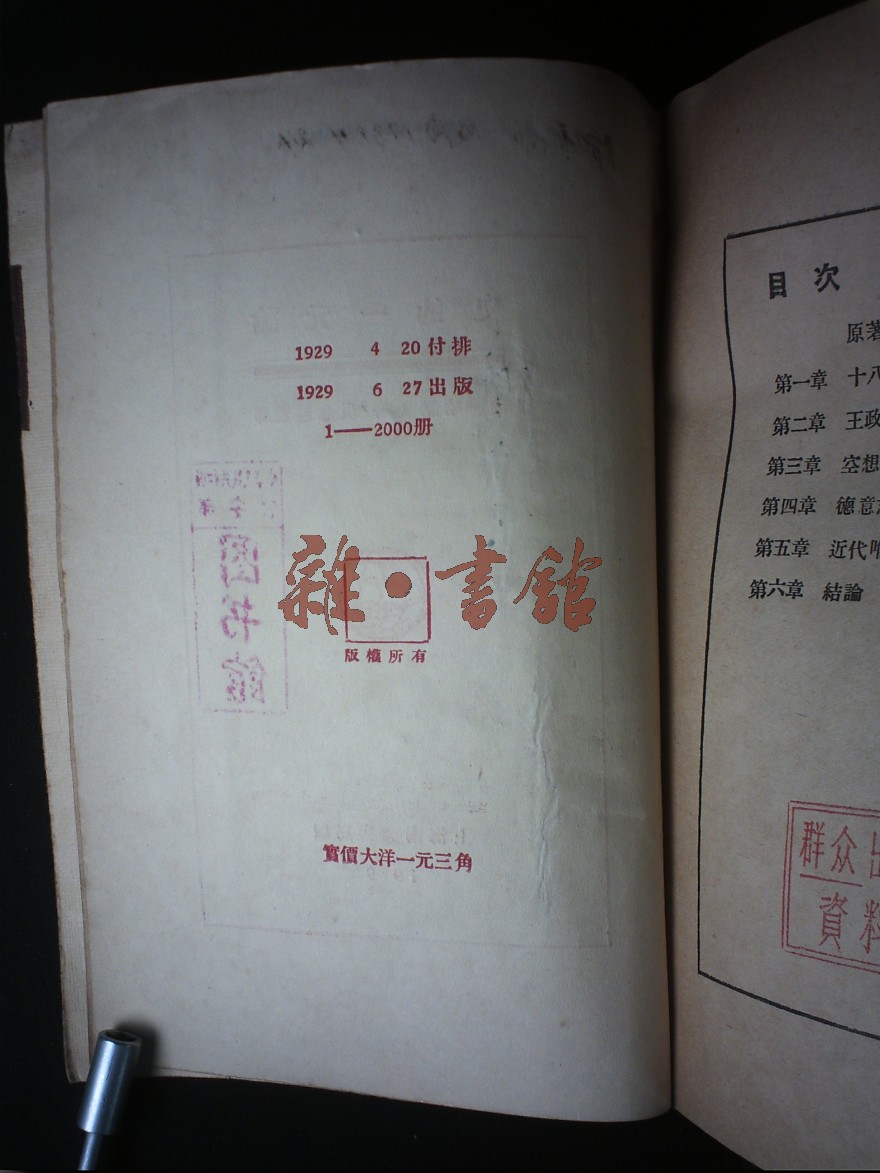 1929 4 20付排
1929 6 27出版
1——2000册
图书馆
雜·書館
版權所有
實價大洋一元三角
目次
原著
第一章 十八
第二章 王政
第三章 空想
第四章 德意志
第五章 近代唯
第六章 結論
群众出
資料